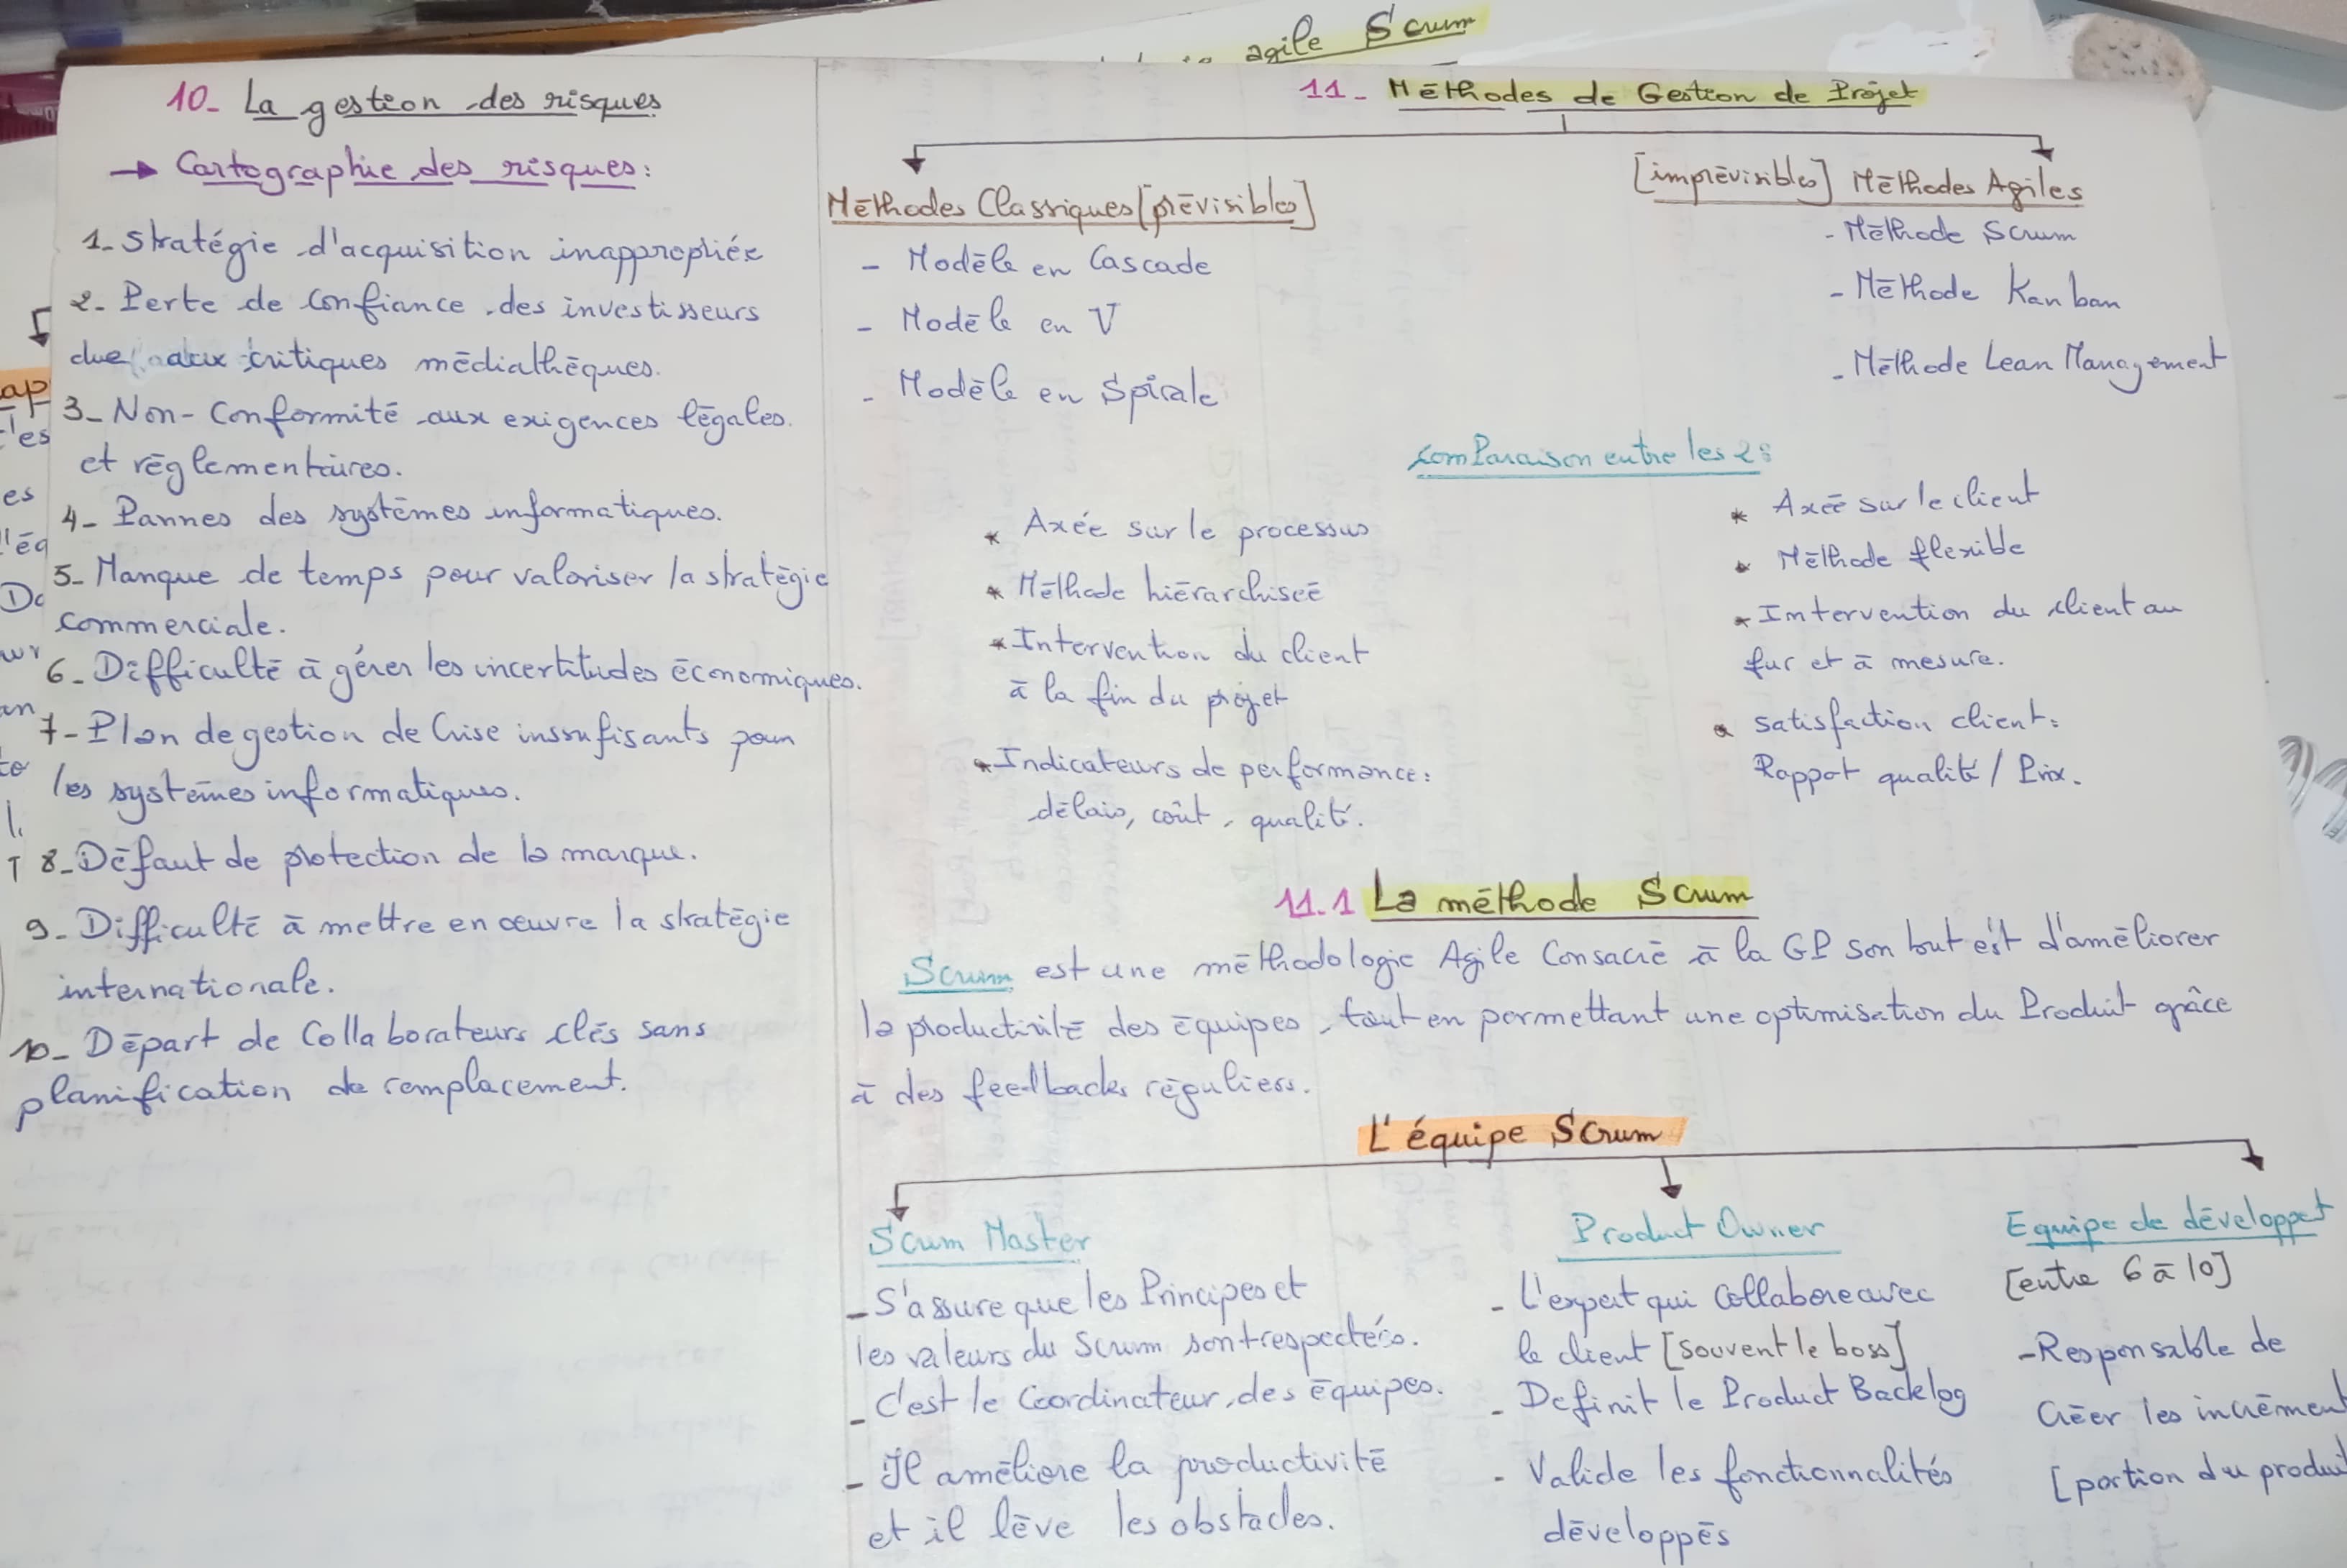 agile Scrum
10- La gestion des risques
→ Cartographie des risques:
1- Stratégie d'acquisition inappropriée
2- Perte de confiance des investisseurs
due aux critiques médiathèques.
3- Non-Conformité aux exigences légales
et réglementaires.
4- Pannes des systèmes informatiques.
5- Manque de temps pour valoriser la stratégie
commerciale.
6- Difficulté à gérer les incertitudes économiques.
7- Plan de gestion de Crise inssufisants pour
les systèmes informatiques.
8- Défaut de protection de la marque.
9- Difficulté à mettre en œuvre la stratégie
internationale.
10- Départ de Collaborateurs clés sans
planification de remplacement.
11- Méthodes de Gestion de Projet
Méthodes Classiques [prévisibles]
- Modèle en Cascade
- Modèle en V
- Modèle en Spirale
[imprévisibles] Méthodes Agiles
- Méthode Scrum
- Méthode Kanban
- Méthode Lean Management
Comparaison entre les 2:
* Axée sur le processus
* Méthode hiérarchisée
* Intervention du client
à la fin du projet
* Indicateurs de performance:
délais, coût, qualité.
* Axée sur le client
* Méthode flexible
* Intervention du client au
fur et à mesure.
* satisfaction client:
Rapport qualité / Prix.
11.1 La méthode Scrum
Scrum est une méthodologie Agile Consacré à la GP son but est d'améliorer
la productivité des équipes, tout en permettant une optimisation du Produit grâce
à des feedbacks réguliers.
L'équipe Scrum
Scrum Master
- S'assure que les Principes et
les valeurs du Scrum sont respectés.
- C'est le Coordinateur des équipes.
- Il améliore la productivité
et il lève les obstacles.
Product Owner
- L'expert qui Collabore avec
le client [souvent le boss]
- Definit le Product Backlog
- Valide les fonctionnalités
développés
Equipe de développet
[entre 6 à 10]
- Responsable de
Créer les incrément
[portion du produit